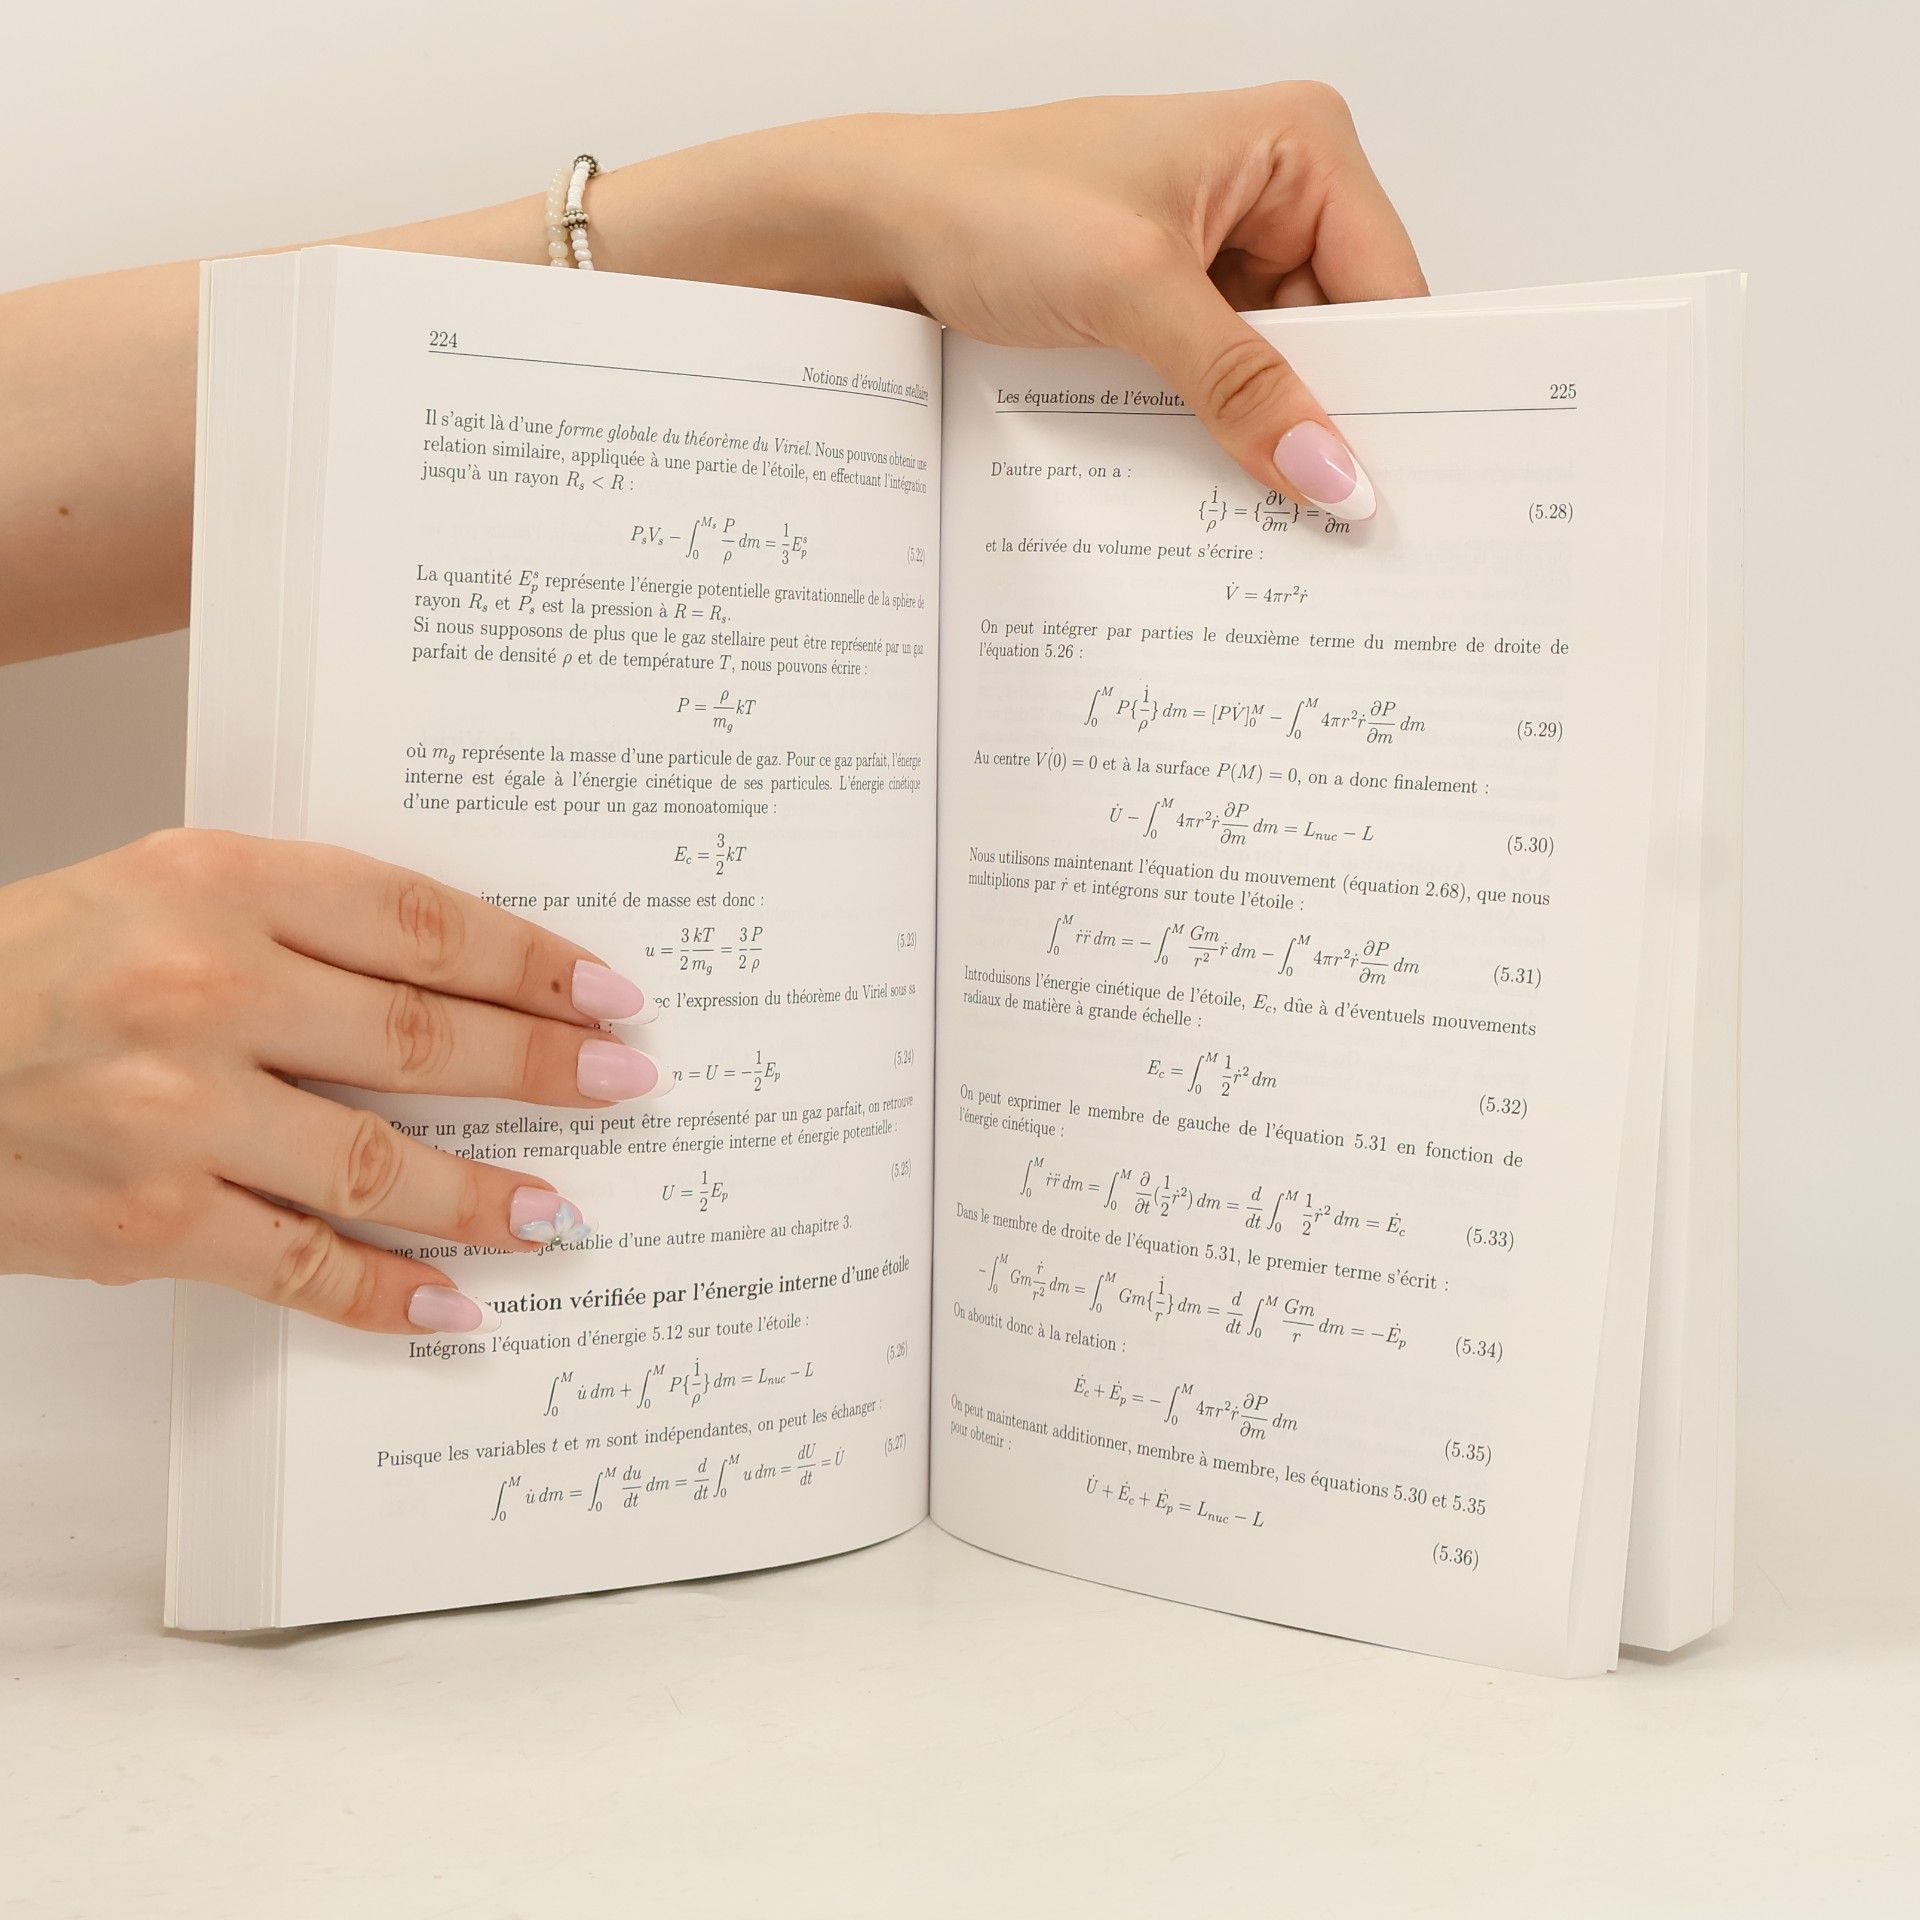 224
Notions d'évolution stellaire
Il s'agit là d'une forme globale du théorème du Viriel. Nous pouvons obtenir une
relation similaire, appliquée à une partie de l'étoile, en effectuant l'intégration
jusqu'à un rayon R_s < R :
P_s V_s − ∫_0^{M_s} P/ρ dm = 1/3 E_p^s (5.22)
La quantité E_p^s représente l'énergie potentielle gravitationnelle de la sphère de
rayon R_s et P_s est la pression à R = R_s.
Si nous supposons de plus que le gaz stellaire peut être représenté par un gaz
parfait de densité ρ et de température T, nous pouvons écrire :
P = ρ/m_g kT
où m_g représente la masse d'une particule de gaz. Pour ce gaz parfait, l'énergie
interne est égale à l'énergie cinétique de ses particules. L'énergie cinétique
d'une particule est pour un gaz monoatomique :
E_c = 3/2 kT
interne par unité de masse est donc :
u = 3/2 kT/m_g = 3/2 P/ρ (5.23)
l'expression du théorème du Viriel sous sa
= U = −1/2 E_p (5.24)
Pour un gaz stellaire, qui peut être représenté par un gaz parfait, on retrouve
relation remarquable entre énergie interne et énergie potentielle :
U = 1/2 E_p (5.25)
nous d'une autre manière au chapitre 3.
vérifiée par l'énergie interne d'une étoile
Intégrons l'équation d'énergie 5.12 sur toute l'étoile :
∫_0^M u̇ dm + ∫_0^M P{i̇/ρ} dm = L_nuc − L (5.26)
Puisque les variables t et m sont indépendantes, on peut les échanger :
∫_0^M u̇ dm = ∫_0^M du/dt dm = d/dt ∫_0^M u dm = dU/dt = U̇ (5.27)
Les équations de
225
D'autre part, on a :
{i̇/ρ} = {∂V/∂m} = /∂m (5.28)
et la dérivée du volume peut s'écrire :
V̇ = 4πr²ṙ
On peut intégrer par parties le deuxième terme du membre de droite de
l'équation 5.26 :
∫_0^M P{i̇/ρ} dm = [PV̇]_0^M − ∫_0^M 4πr²ṙ ∂P/∂m dm (5.29)
Au centre V̇(0) = 0 et à la surface P(M) = 0, on a donc finalement :
U̇ − ∫_0^M 4πr²ṙ ∂P/∂m dm = L_nuc − L (5.30)
Nous utilisons maintenant l'équation du mouvement (équation 2.68), que nous
multiplions par ṙ et intégrons sur toute l'étoile :
∫_0^M ṙr̈ dm = − ∫_0^M Gm/r² ṙ dm − ∫_0^M 4πr²ṙ ∂P/∂m dm (5.31)
Introduisons l'énergie cinétique de l'étoile, E_c, dûe à d'éventuels mouvements
radiaux de matière à grande échelle :
E_c = ∫_0^M 1/2 ṙ² dm (5.32)
On peut exprimer le membre de gauche de l'équation 5.31 en fonction de
l'énergie cinétique :
∫_0^M ṙr̈ dm = ∫_0^M ∂/∂t (1/2 ṙ²) dm = d/dt ∫_0^M 1/2 ṙ² dm = Ė_c (5.33)
Dans le membre de droite de l'équation 5.31, le premier terme s'écrit :
− ∫_0^M Gm ṙ/r² dm = ∫_0^M Gm{i̇/r} dm = d/dt ∫_0^M Gm/r dm = −Ė_p (5.34)
On aboutit donc à la relation :
Ė_c + Ė_p = − ∫_0^M 4πr²ṙ ∂P/∂m dm (5.35)
On peut maintenant additionner, membre à membre, les équations 5.30 et 5.35
pour obtenir :
U̇ + Ė_c + Ė_p = L_nuc − L (5.36)